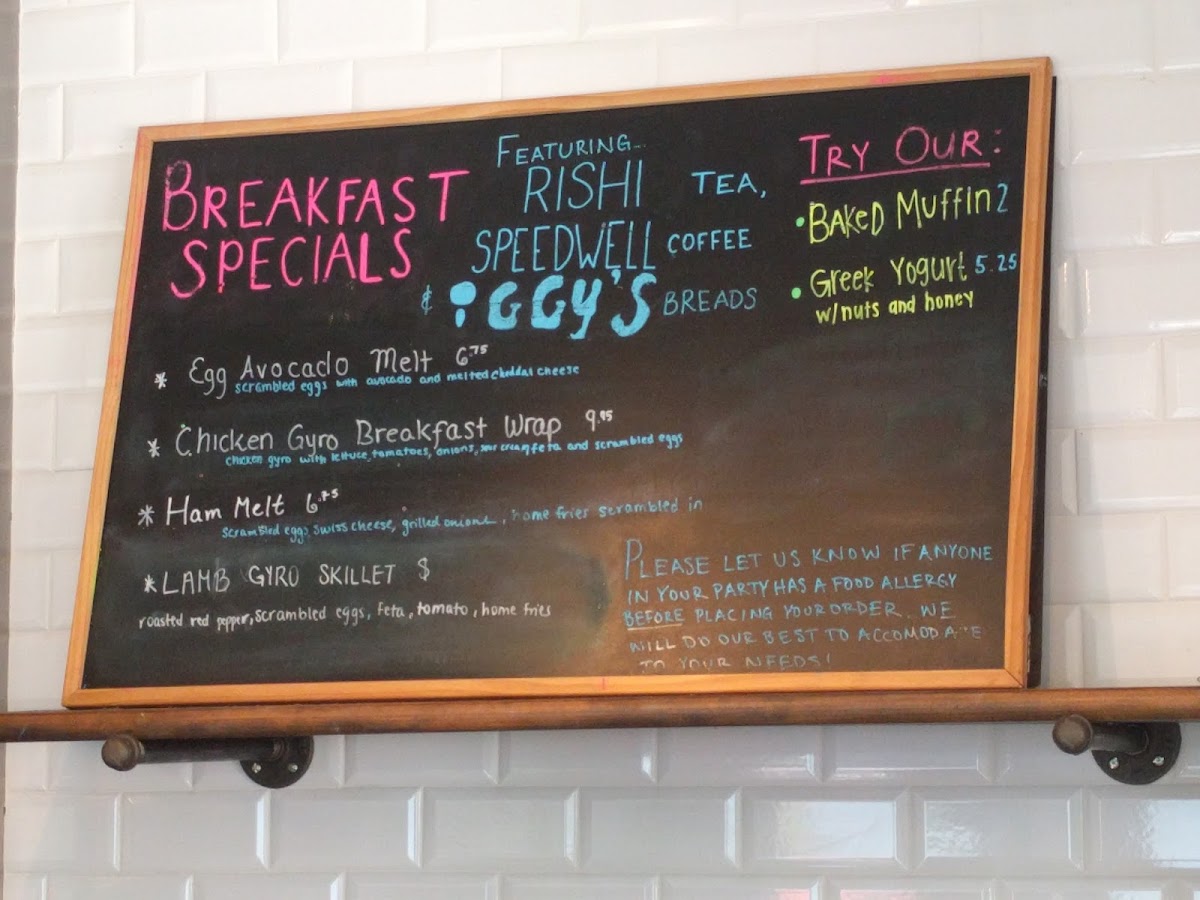 BREAKFAST
SPECIALS
FEATURING...
RISHI TEA,
SPEEDWELL COFFEE
& IGGY'S BREADS
TRY OUR:
• BAKED MUFFIN 2
• Greek Yogurt 5.25
w/nuts and honey
* Egg Avocado Melt 6.75
scrambled eggs with avocado and melted cheddar cheese
* Chicken Gyro Breakfast Wrap 9.95
chicken gyro with lettuce, tomatoes, onions, sour cream feta and scrambled eggs
* Ham Melt 6.75
scrambled eggs, swiss cheese, grilled onions, home fries scrambled in
* LAMB GYRO SKILLET $
roasted red pepper, scrambled eggs, feta, tomato, home fries
PLEASE LET US KNOW IF ANYONE
IN YOUR PARTY HAS A FOOD ALLERGY
BEFORE PLACING YOUR ORDER. WE
WILL DO OUR BEST TO ACCOMODATE
TO YOUR NEEDS!